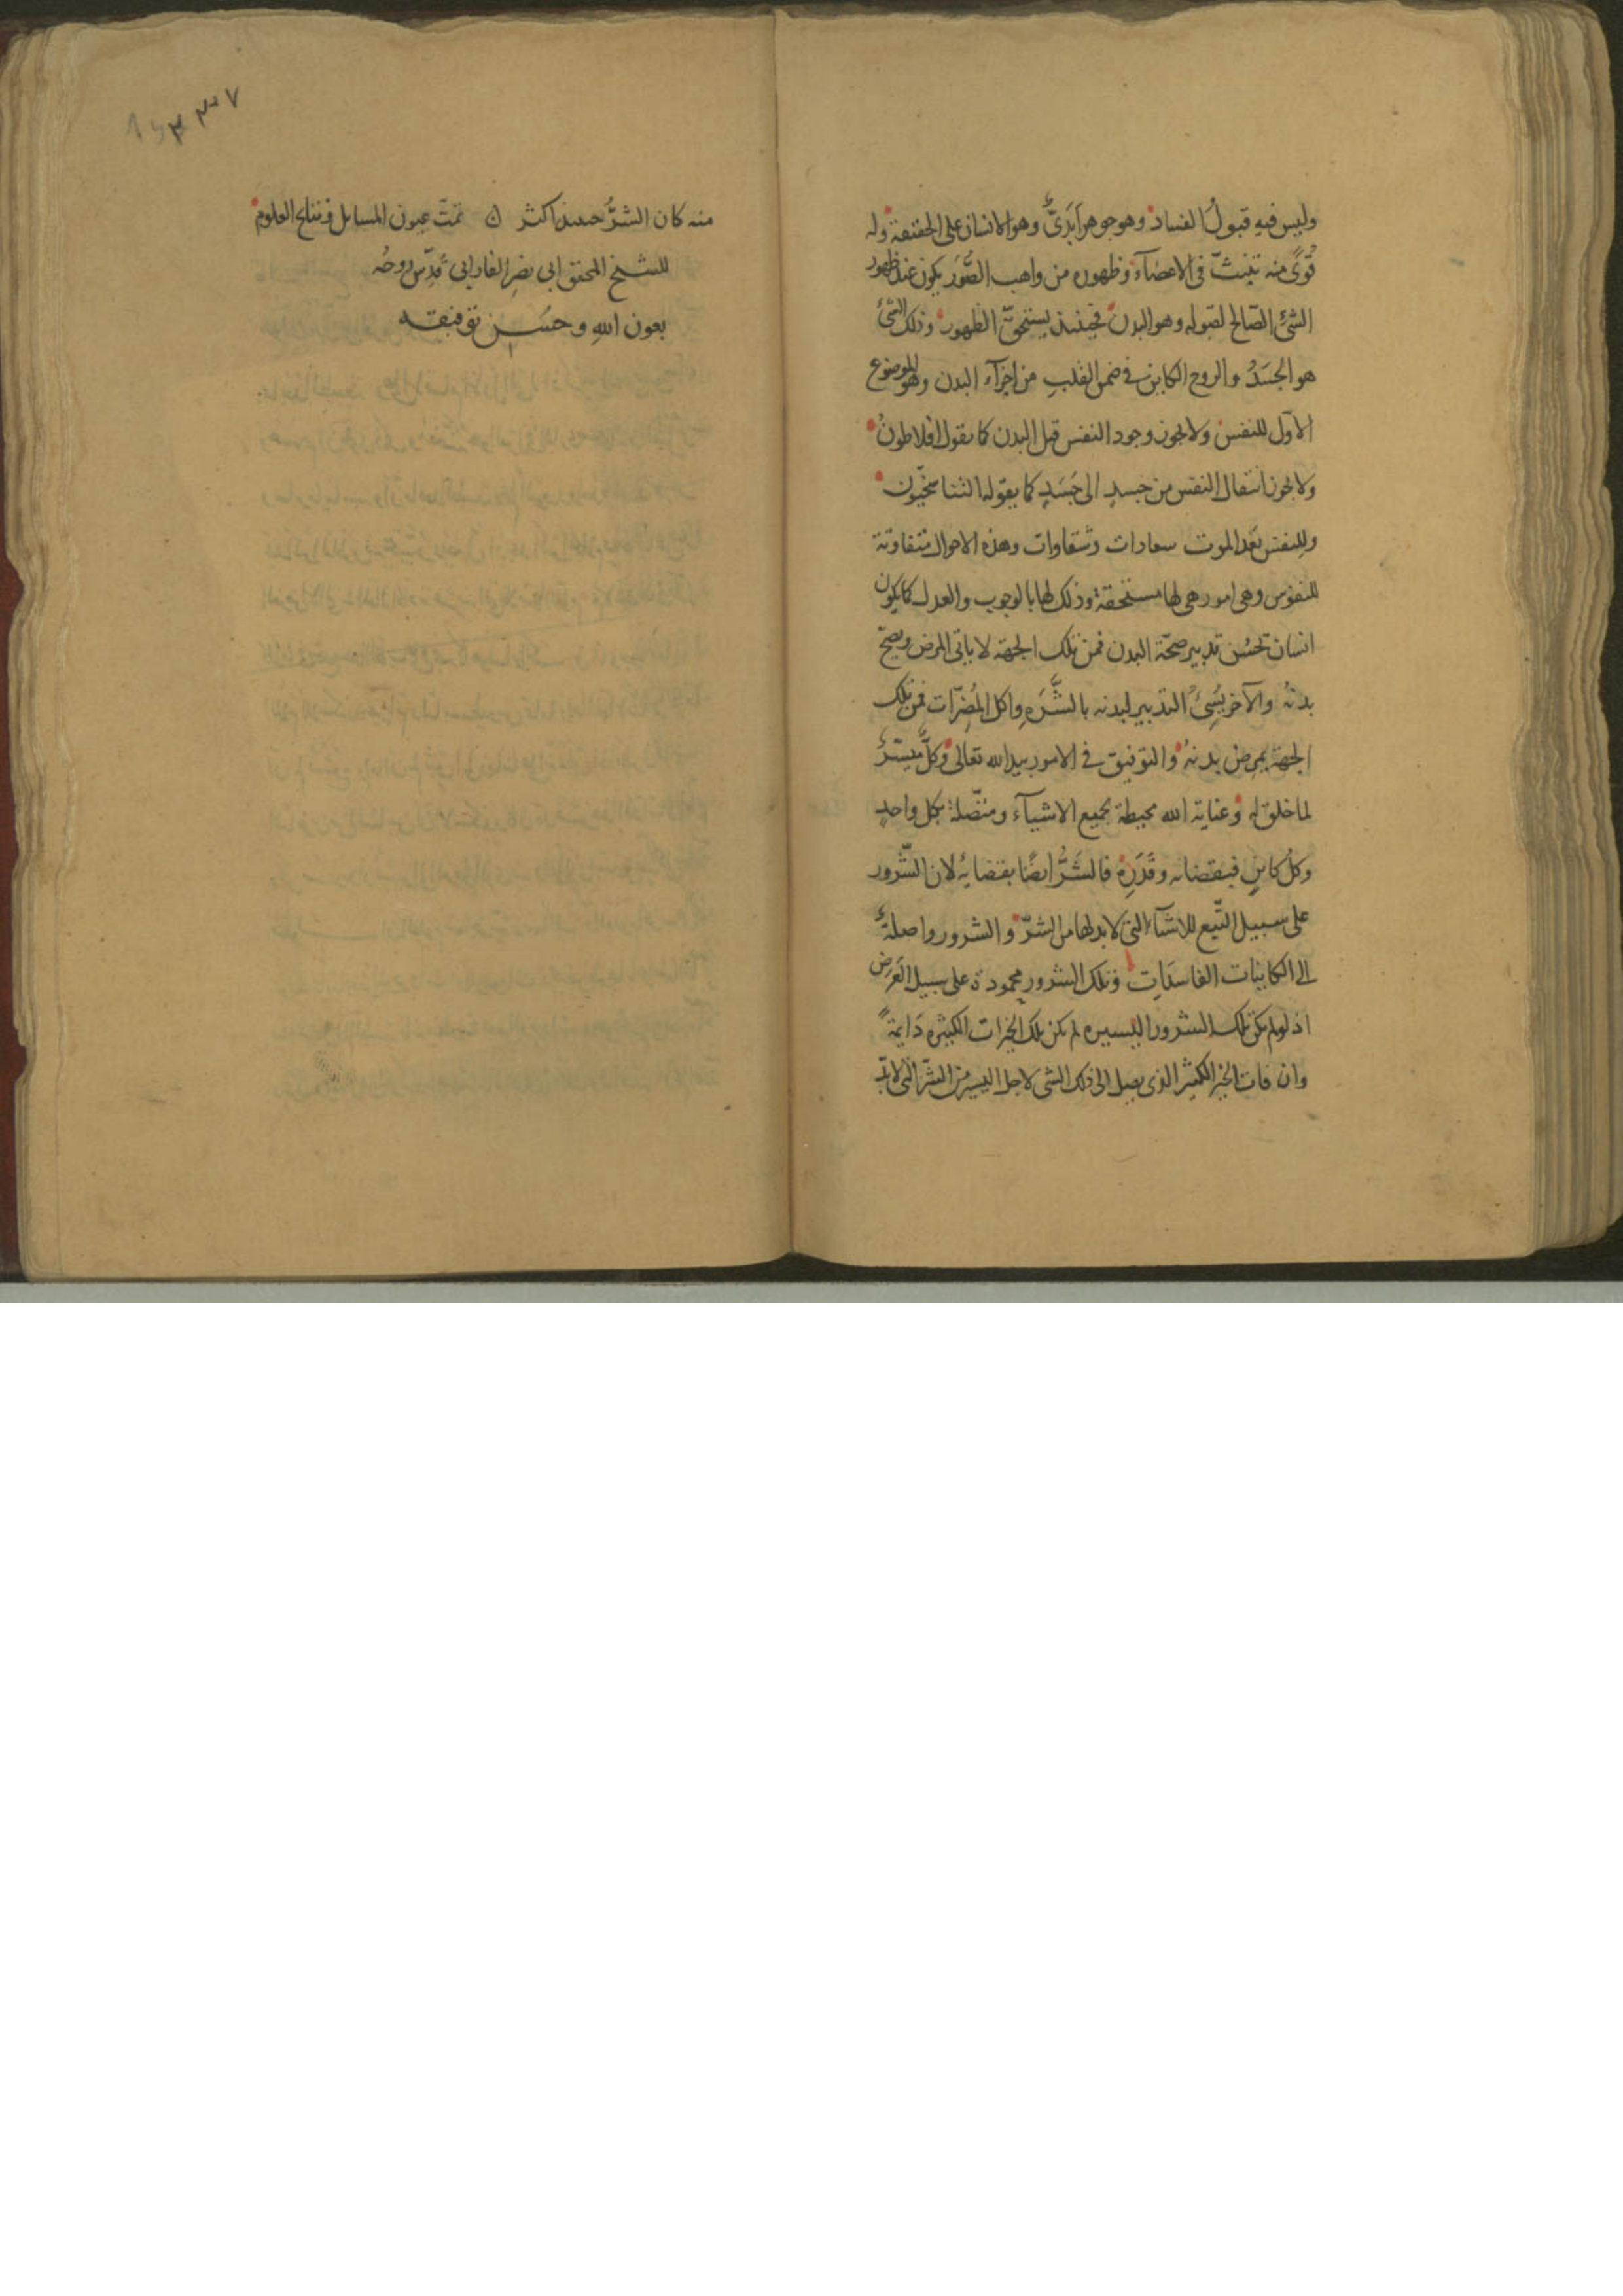 وليس فيه قبولُ الفساد وهو جوهر اَبَدِىٌّ وهو الانسان على الحقيقة وله
قُوًى منه تنبثّ فى الاعضآء وظهوره من واهب الصُّوَر يكون عند ظهور
الشئ الصّالح لقبوله وهو البدن فحينئذ يستحقّ الظهور وذلك الشئ
هو الجسَدُ والروح الكاين فى ضمن القلب من اجزآء البدن وهو الموضوع
الاوّل للنفس ولا يجوز وجود النفس قبل البدن كما يقول افلاطونُ
ولا يجوز انتقال النفس من جسدٍ الى جَسَدٍ كما يقوله التناسخيّون
وللنفس بَعد الموت سعادات وشقاوات وهذه الاحوال متفاوتة
للنفوس وهى امور هى لها مستحقة وذلك لها بالوجوب والعدل كما يكون
انسان يحسُن تدبير صحّة البدن فمن تلك الجهة لا ياتى المرض ويصحّ
بدنهُ والآخر يُسِئُ التدبير لبدنه بالشَّرَهِ واكل المُضِرّات فمن تلك
الجهة يمرض بدنهُ والتوفيق فى الامور بيد الله تعالى وكلٌّ ميسّرٌ
لما خلق له وعناية الله محيطة بجميع الاشيآء ومتصّلة بكل واحدٍ
وكلُ كاينٍ فبقضائه وقَدَرِه فالشَرُّ ايضًا بقضايهُ لان الشّرور
على سبيل التّبع للاشيآء التى لابد لها من الشرّ والشرور واصلةٌ
الى الكاينات الفاسدَاتِ وتلك الشرور محمودة على سبيل العَرَض
اذ لو لم تكن تلك الشرور اليسيره لم تكن تلك الخيرات الكثيره دَايمةً
وان فات الخير الكثير الذى يصل الى ذلك الشى لاجل اليسير من الشرّ الذى لابدّ
٢٣٧
منه كان الشرُّ حينئذ اكثر تمّتْ عيون المسايل فى نتايج العلوم
للشيخ المحقق ابى نصرِ الفارابى قُدّس روحُه
بعون اللهِ وحسُن توفيقه